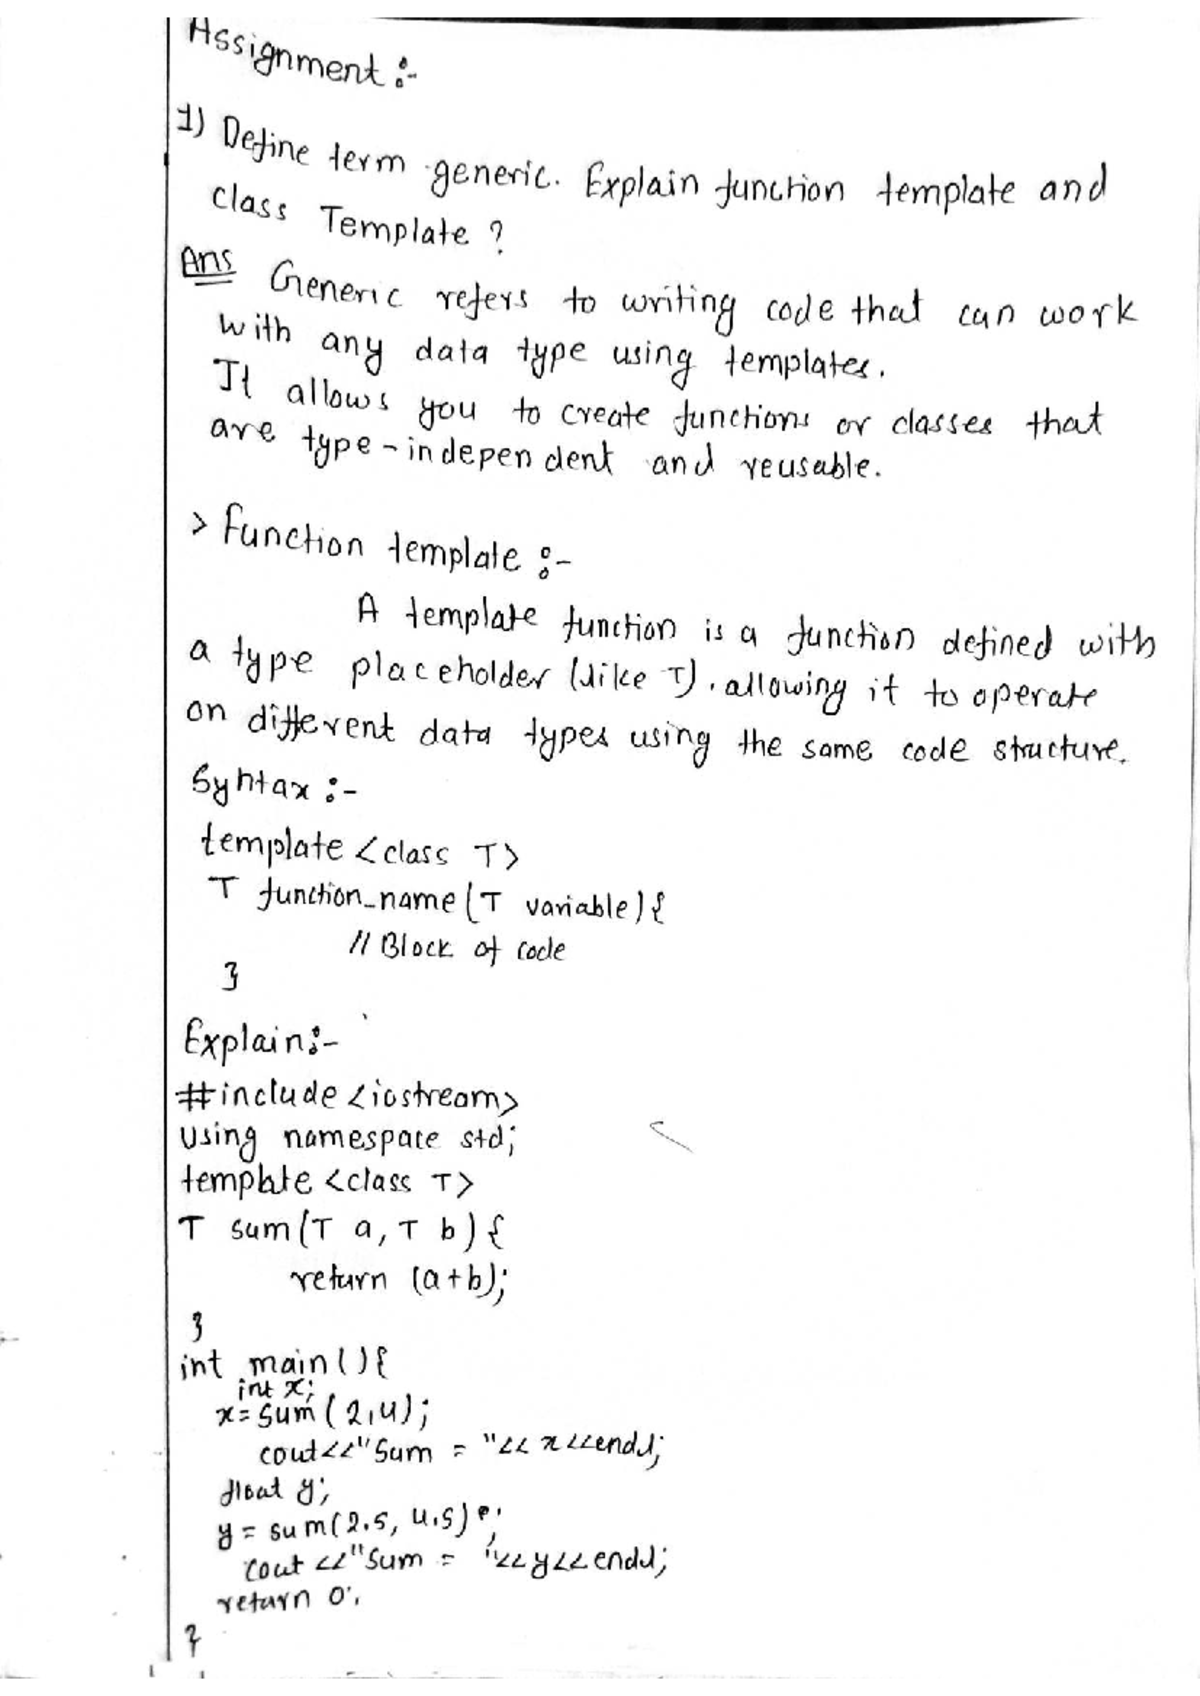 Assignment :-
1) Define term generic. Explain function template and
class Template ?
Ans Generic refers to writing code that can work
with any data type using templates.
It allows you to create functions or classes that
are type-independent and reusable.
> Function template :-
A template function is a function defined with
a type placeholder (like T), allowing it to operate
on different data types using the same code structure.
Syntax :-
template <class T>
T function_name (T variable) {
// Block of code
}
Explain:-
#include <iostream>
using namespace std;
template <class T>
T sum (T a, T b) {
return (a+b);
}
int main () {
int x;
x = sum (2,4);
cout<<"Sum = "<< x <<endl;
float y;
y = sum(2.5, 4.5);
cout <<"Sum = "<<y<< endl;
return 0;
}